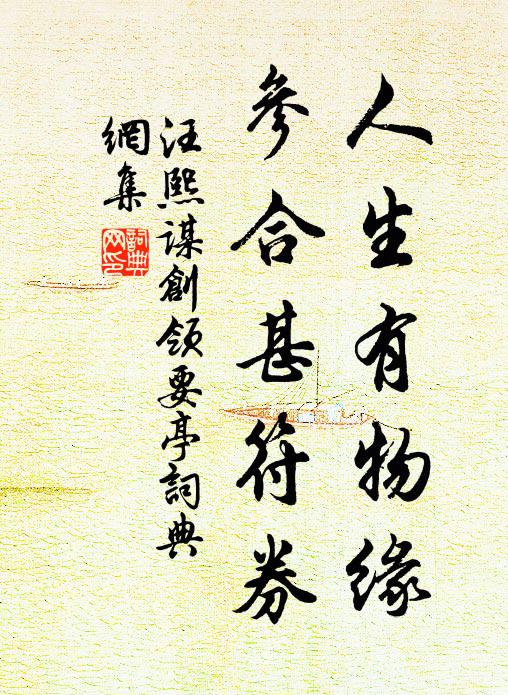 人生有物緣
參合甚符券
汪熙謀創領要亭詞典
網集
詞典
网印